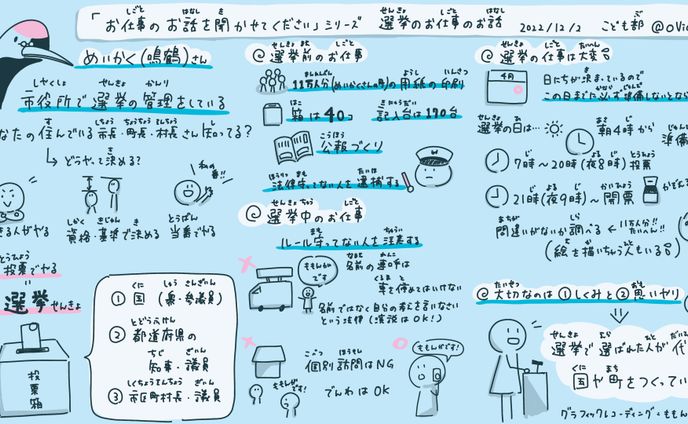 「お仕事のお話を聞かせてください」シリーズ 選挙のお仕事のお話 2022/12/2 こども部 @oVice
めいかく(鳴鶴)さん
市役所で選挙の管理をしている
なたの住んでいる市長・町長・村長さん知ってる?
→どうやって決める?
私の番!!
きる人がやる
資格・基準で決める
当番でやる
投票でやる
選挙
投票箱
① 国(衆・参議員)
② 都道府県の
知事・議員
③ 市区町村長・議員
@選挙前のお仕事
11万人分(めいかくさんの町)の用紙の印刷
箱は40コ 記入台は190台
公報づくり
法律守ってない人を逮捕する
@選挙中のお仕事
ルール守ってない人を注意する
ももんが です
名前の連呼は
車を停めてはいけない
名前ではなく自分の考えを言いなさい
という法律(演説はOK!)
個別訪問はNG
でんわはOK
ももんがです!
ももんがです!
@選挙の仕事は大変
4月
日にちが決まっているので
この日までに必ず準備しないとなら
選挙の日は…
朝4時から準備
7時〜20時(夜8時)投票
21時(夜9時)〜開票
間違いがないか調べる ← 11万人分!! だいへん!!
(絵を描いちゃう人もいる)
@大切なのは①しくみと②思いやり
選挙で選ばれた人が代
国や町をつくってい
グラフィックレコーディング・ももん